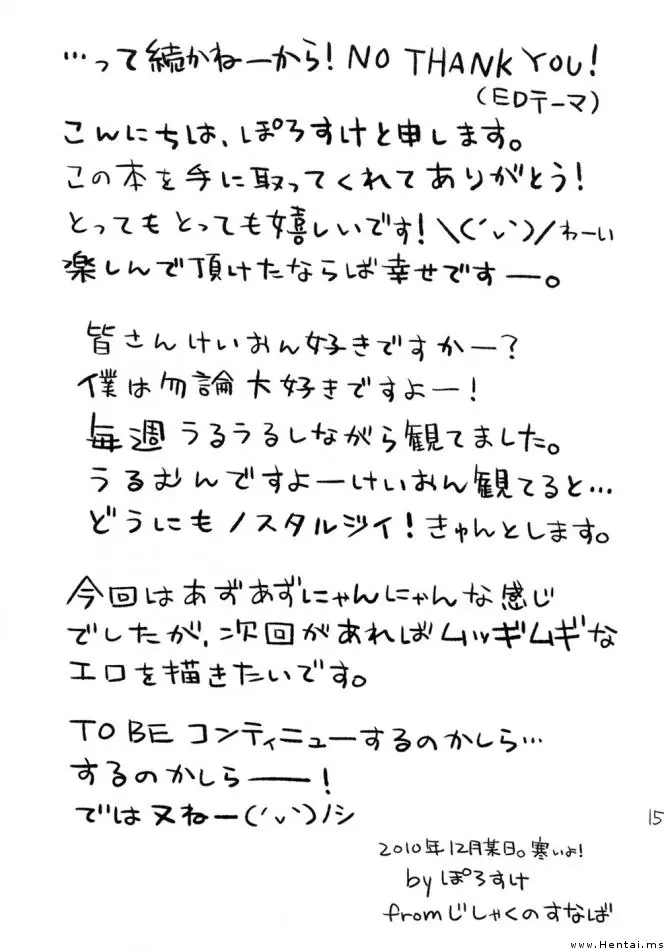 …って続かねーから！NO THANK YOU！
（EDテーマ）
こんにちは、ぽろすけと申します。
この本を手に取ってくれてありがとう！
とってもとっても嬉しいです！＼(´ヽ`)／わーい
楽しんで頂けたならば幸せですー。
皆さんけいおん好きですかー？
僕は勿論大好きですよー！
毎週うるうるしながら観てました。
うるむんですよーけいおん観てると…
どうにもノスタルジイ！きゅんとします。
今回はあずあずにゃんにゃんな感じ
でしたが、次回があればムッギムギな
エロを描きたいです。
TO BE コンティニューするのかしら…
するのかしらーー！
では又ねー(´ヽ`)ノシ
15
2010年12月某日。寒いよ！
by ぽろすけ
fromじしゃくのすなば
www.Hentai.ms